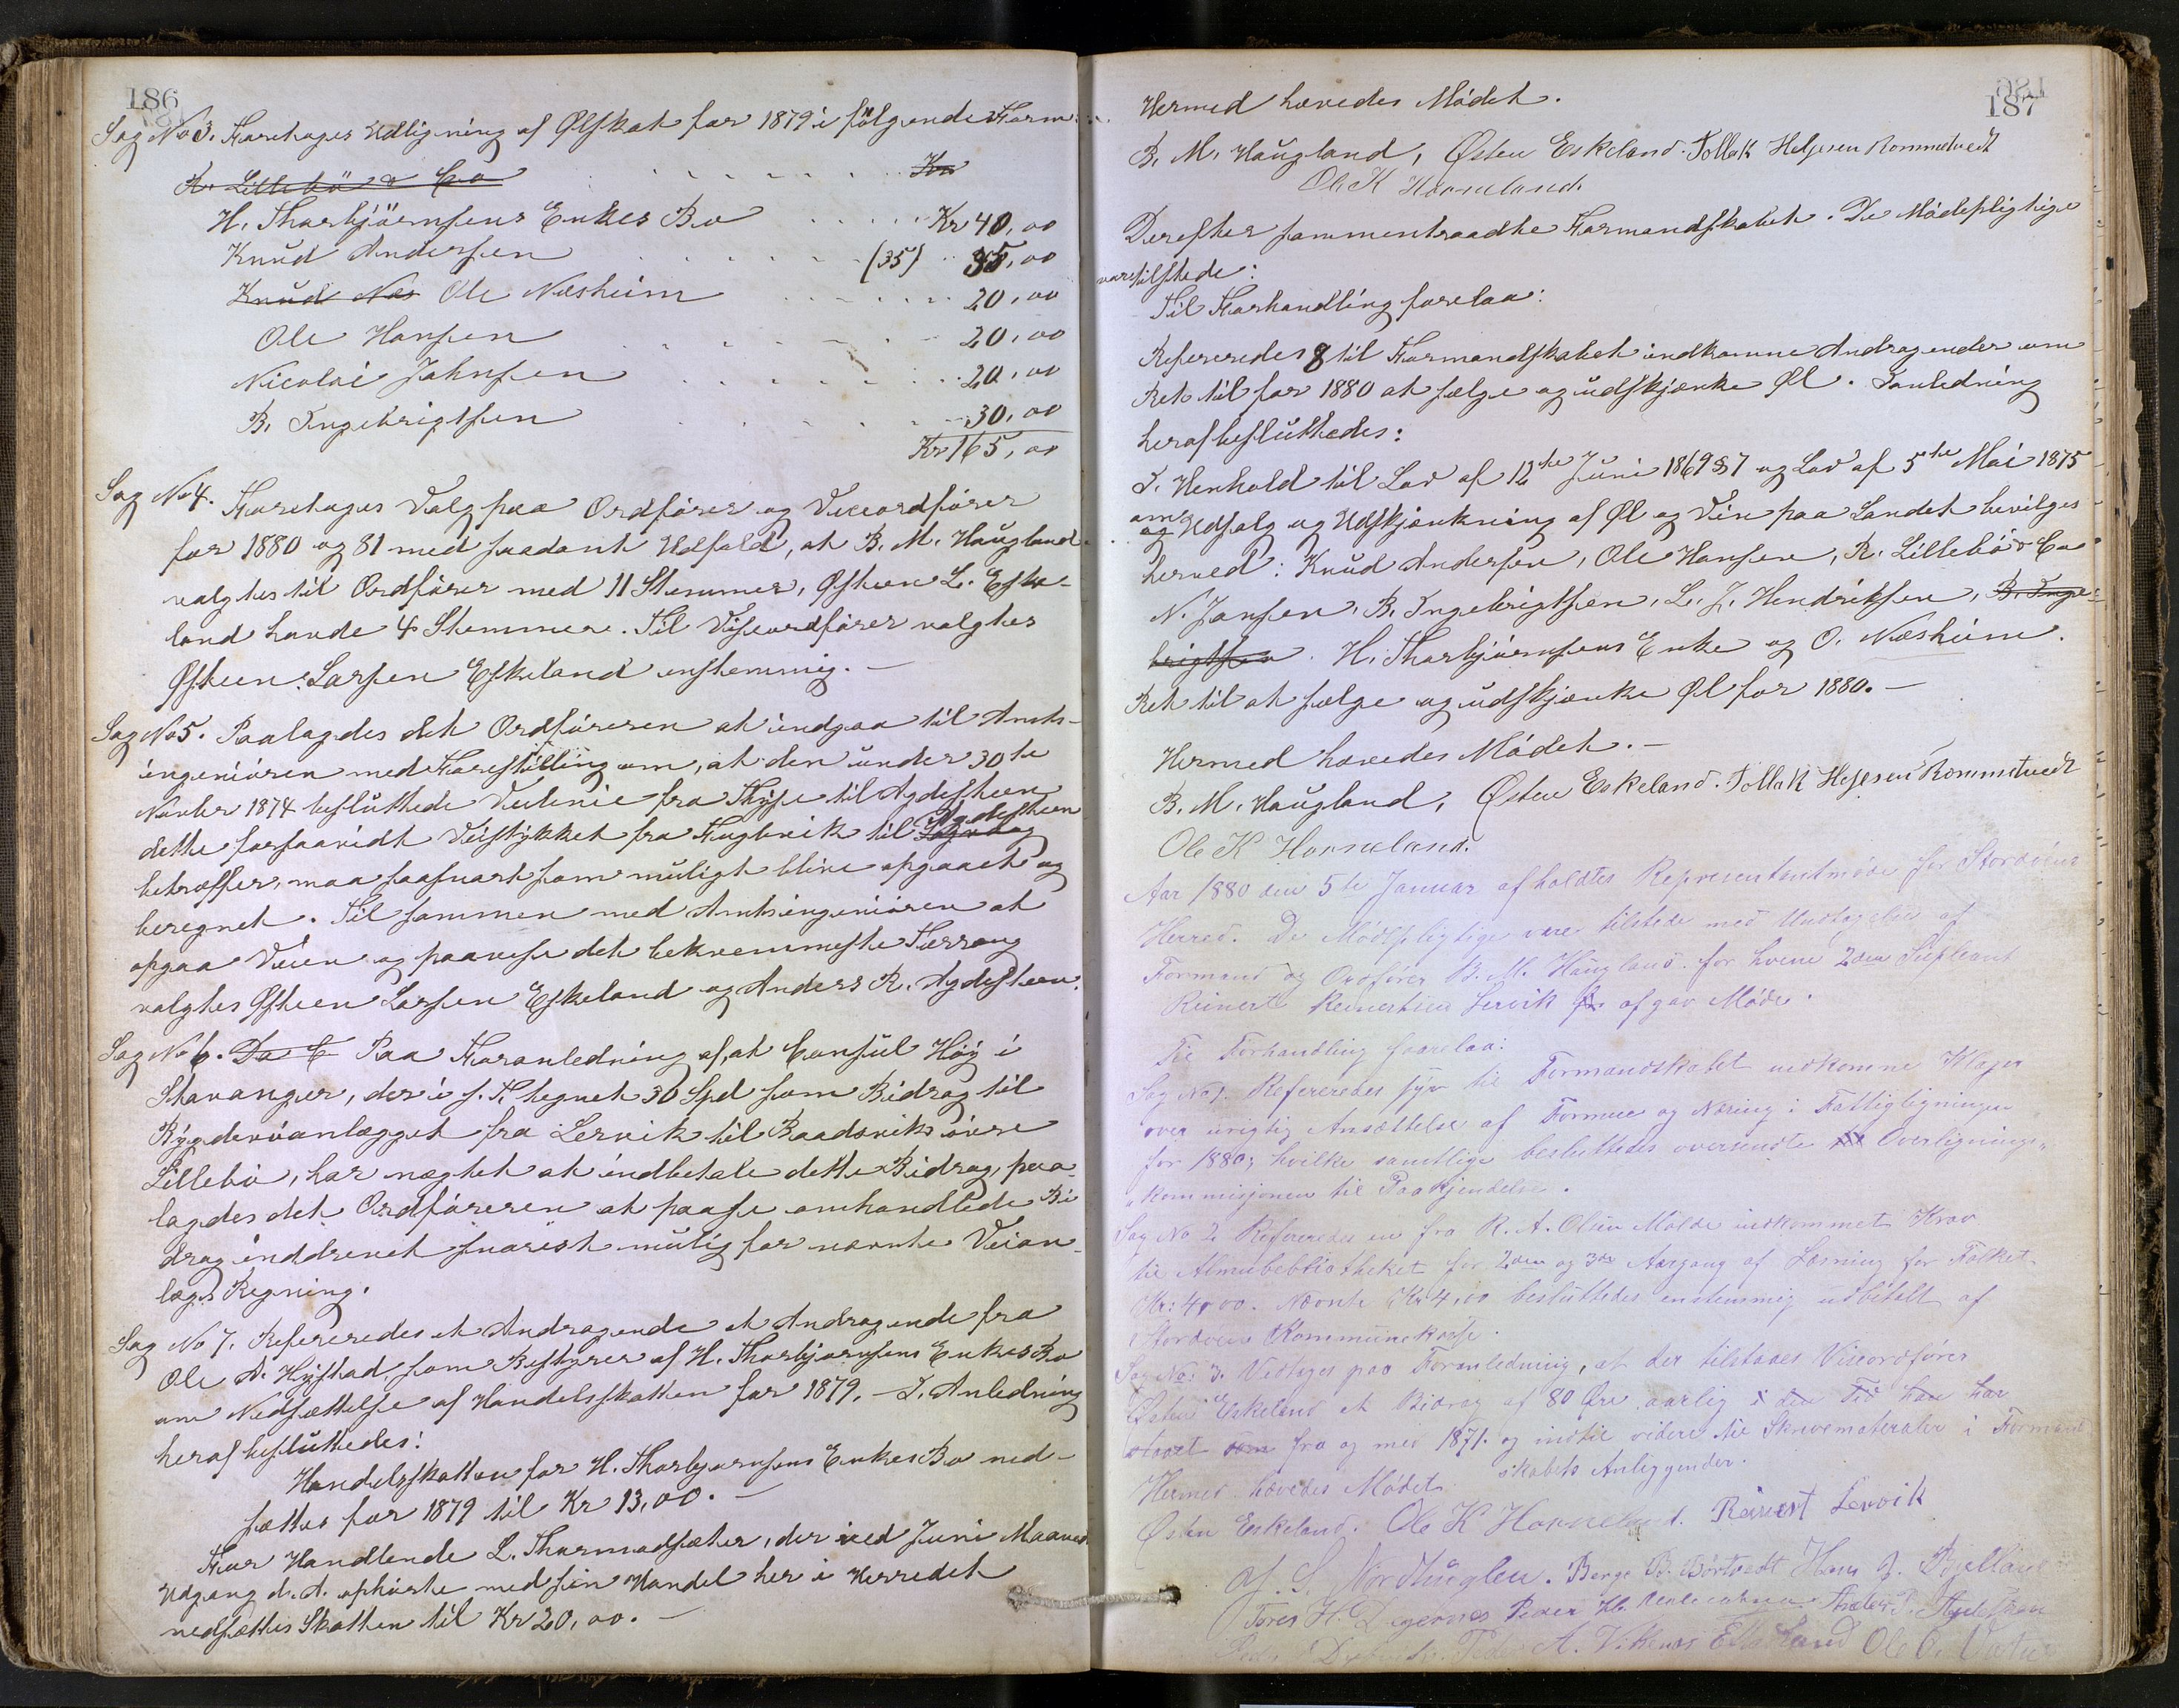 186
Sag No 3. Foretoges Udligning af Ølskat for 1879 i følgende Form:
R. Lillebø & Co . . . . . . . Kr
H. Thorbjørnsens Enkes Bo . . . . . Kr 40,00
Knud Andersen . . . . . . (35) . . 35,00
Knud Næs Ole Næsheim . . . . . . 20,00
Ole Hansen . . . . . . 20,00
Nicolai Johnsen . . . . . . . 20,00
B. Ingebrigtsen . . . . . . 30,00
Kr 165,00
Sag No 4. Foretoges Valg paa Ordfører og Viceordfører
for 1880 og 81 med saadant Udfald, at B. M. Haugland
valgtes til Ordfører med 11 Stemmer, Østeen L. Eske-
land havde 4 Stemmer. Til Viseordfører valgtes
Østeen Larsen Eskeland enstemmig. —
Sag No 5. Paalagdes det Ordføreren at indgaa til Amts-
ingeniøren med Forestilling om, at den under 30te
Novbr 1874 besluttede Veilinie fra Thyse til Agdesteen
dette forsaavidt Veistykket fra Fuglevik til Sagvaag Agdesteen
betræffer, maa saasnart som muligt blive opgaaet og
beregnet. Til sammen med Amtsingeniøren at
opgaa Veien og paavise det bekvemmeste Terræng
valgtes Østeen Larsen Eskeland og Anders R. Agdesteen.
Sag No 6. Da C Paa Foranledning af, at Consul Høy i
Stavanger, der i s. T. tegnet 30 Spd som Bidrag til
Bygdeveianlægget fra Lervik til Baadsviks øvre
Lillebø, har nægtet at indbetale dette Bidrag, paa-
lagdes det Ordføreren at paase omhandlede Bi
drag inddrevet snarest mulig for nævnte Veian-
lægs Regning.
Sag No 7. Refereredes et Andragende et Andragende fra
Ole A. Hystad, som Bestyrer af H. Thorbjørnsens Enkes Bo
om Nedsættelse af Handelsskatten for 1879. — I Anledning
heraf besluttedes:
Handelsskatten for H. Thorbjørnsens Enkes Bo ned-
sættes for 1879 til Kr 13,00. —
For Handlende L. Thormodsæter, der ved Juni Maaned
Udgang d. A. ophørte med sin Handel her i Herredet
nedsættes Skatten til Kr 20,00. —
187
Hermed hævedes Mødet.
B. M. Haugland, Østen Eskeland. Tollak Helgesen Rommetvedt
Ole K Horneland.
Derefter sammentraadte Formandskabet. De Mødepligtige
var tilstede:
Til Forhandling forelaa:
Refereredes 8 til Formandskabet indkomne Andragender om
Ret til for 1880 at sælge og udskjænke Øl. I anledning
heraf besluttedes:
I. Henhold til Lov af 12te Juni 1869 § 7 og Lov af 5te Mai 1875
om og Udsalg og Udskjænkning af Øl og Vin paa Landet bevilges
herved: Knud Andersen, Ole Hansen, R. Lillebø & Co
N. Jansen, B. Ingebrigtsen, L. J. Hendriksen, B. Inge-
brigtsen. H. Thorbjørnsens Enke og O. Næsheim.
Ret til at sælge og udskjænke Øl for 1880. —
Hermed hævedes Mødet. —
B. M. Haugland, Østen Eskeland. Tollak Helgesen Rommetvedt
Ole K Horneland.
Aar 1880 den 5te Januar afholdtes Representantmøde for Stordøens
Herred. De Mødepligtige vare tilstede med Undtagelse af
Formand og Ordfører B. M. Haugland for hvem 2den Supleant
Reinert Reinertsen Lervik afgav Møde.
Til Forhandling forelaa:
Sag No 1. Refereredes syv til Formandskabet indkomne Klager
over urigtig Ansættelse af Formue og Næring i Fattigligningen
for 1880; hvilke samtlige besluttedes oversendte til Overlignings-
kommisjonen til Paakjendelse.
Sag No 2 Refereredes en fra R. A. Olsen Molde indkommet Krav
til Almubebliotheket for 2den og 3die Aargang af Læsning for Folket
Kr: 4,00. Nævnte Kr 4,00 besluttedes enstemmig udbetalt af
Stordøens Kommunekasse.
Sag No: 3. Vedtoges paa Foranledning, at der tilstaaes Viseordfører
Østen Eskeland et Bidrag af 80 Øre aarlig i den Tid han har
staaet som fra og med 1871. og indtil videre til Skrivematerialer i Formand
skabets Anliggender.
Hermed hævedes Mødet
Østen Eskeland. Ole K Horneland. Reinert Lervik
A. S. Nordhuglen. Børge B. Børtvedt Hans J.
Tores H. Digernes Peder Kl. Anders R. Agdesteen
A. Vikenes Ole O.